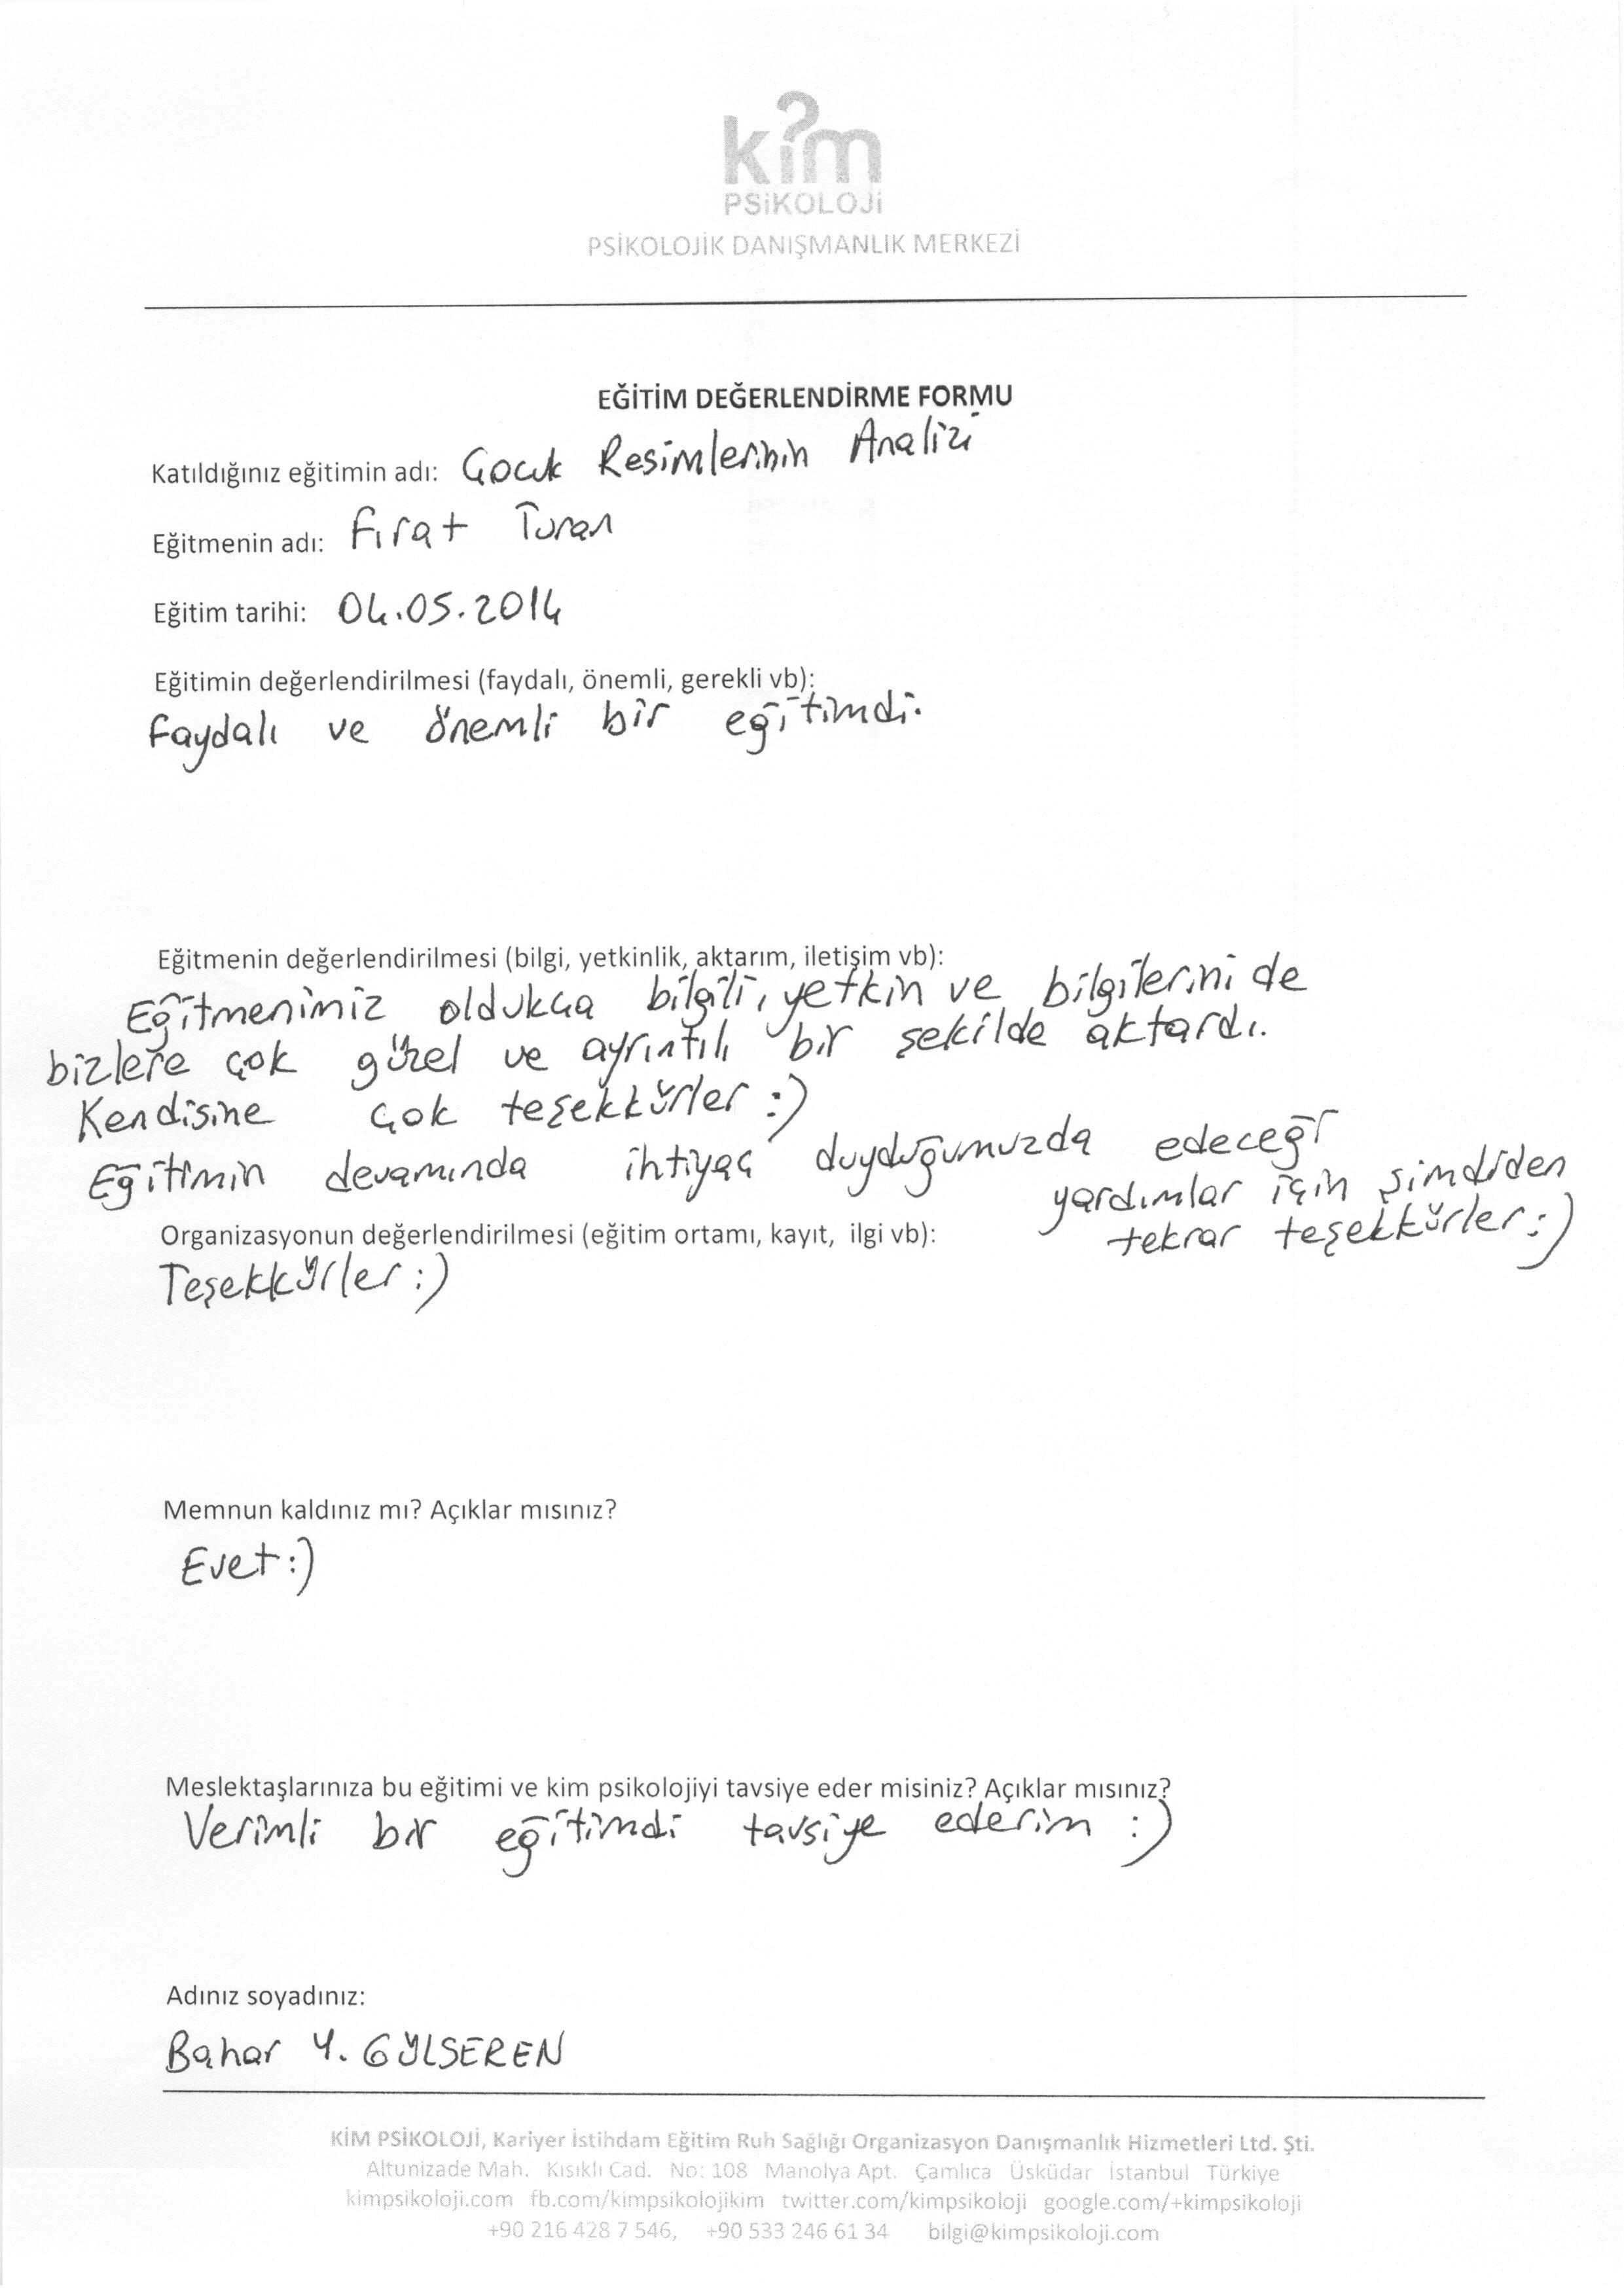 kim
PSiKOLOJi
PSİKOLOJİK DANIŞMANLIK MERKEZİ
EĞİTİM DEĞERLENDİRME FORMU
Katıldığınız eğitimin adı: Çocuk Resimlerinin Analizi
Eğitmenin adı: Fırat Turan
Eğitim tarihi: 04.05.2014
Eğitimin değerlendirilmesi (faydalı, önemli, gerekli vb):
Faydalı ve önemli bir eğitimdi.
Eğitmenin değerlendirilmesi (bilgi, yetkinlik, aktarım, iletişim vb):
Eğitmenimiz oldukça bilgili, yetkin ve bilgilerini de
bizlere çok güzel ve ayrıntılı bir şekilde aktardı.
Kendisine çok teşekkürler :)
Eğitimin devamında ihtiyaç duyduğumuzda edeceği
yardımlar için şimdiden
tekrar teşekkürler :)
Organizasyonun değerlendirilmesi (eğitim ortamı, kayıt, ilgi vb):
Teşekkürler :)
Memnun kaldınız mı? Açıklar mısınız?
Evet :)
Meslektaşlarınıza bu eğitimi ve kim psikolojiyi tavsiye eder misiniz? Açıklar mısınız?
Verimli bir eğitimdi tavsiye ederim :)
Adınız soyadınız:
Bahar Y. GÜLSEREN
KİM PSİKOLOJİ, Kariyer İstihdam Eğitim Ruh Sağlığı Organizasyon Danışmanlık Hizmetleri Ltd. Şti.
Altunizade Mah. Kısıklı Cad. No: 108 Manolya Apt. Çamlıca Üsküdar İstanbul Türkiye
kimpsikoloji.com fb.com/kimpsikolojikim twitter.com/kimpsikoloji google.com/+kimpsikoloji
+90 216 428 7 546, +90 533 246 61 34 bilgi@kimpsikoloji.com